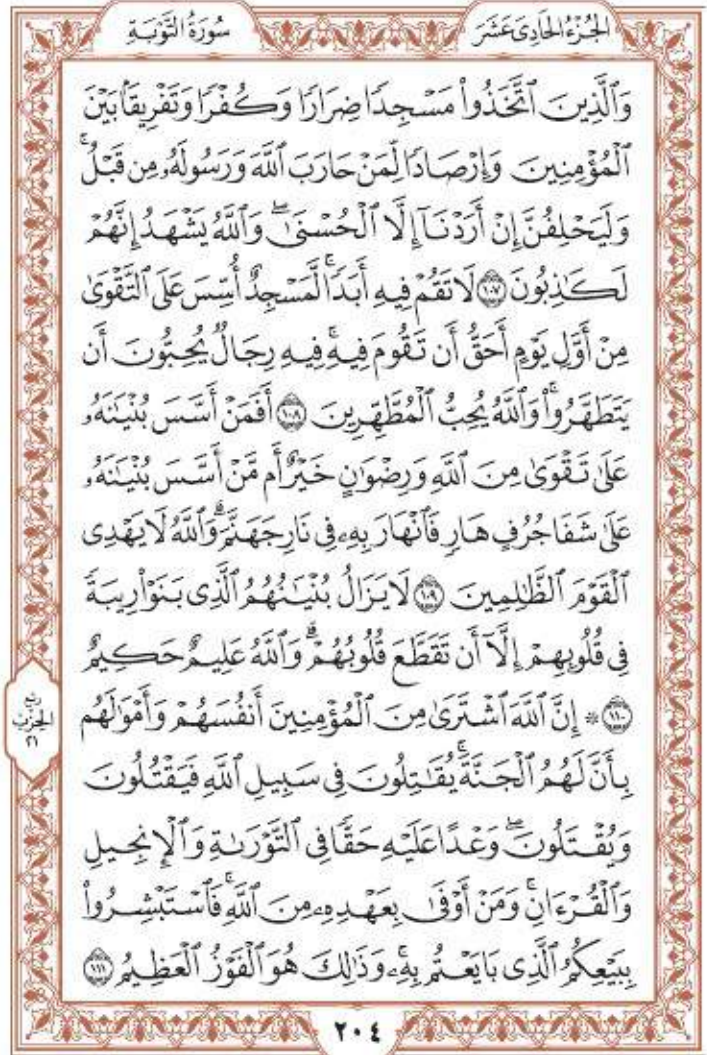 الجُزْءُ الحَادِىَ عَشَرَ
سُورَةُ التَّوْبَةِ
وَٱلَّذِينَ ٱتَّخَذُواْ مَسْجِدًا ضِرَارًا وَكُفْرًا وَتَفْرِيقًۢا بَيْنَ
ٱلْمُؤْمِنِينَ وَإِرْصَادًا لِّمَنْ حَارَبَ ٱللَّهَ وَرَسُولَهُۥ مِن قَبْلُۚ
وَلَيَحْلِفُنَّ إِنْ أَرَدْنَآ إِلَّا ٱلْحُسْنَىٰۖ وَٱللَّهُ يَشْهَدُ إِنَّهُمْ
لَكَـٰذِبُونَ ١٠٧ لَا تَقُمْ فِيهِ أَبَدًاۚ لَّمَسْجِدٌ أُسِّسَ عَلَى ٱلتَّقْوَىٰ
مِنْ أَوَّلِ يَوْمٍ أَحَقُّ أَن تَقُومَ فِيهِۚ فِيهِ رِجَالٌ يُحِبُّونَ أَن
يَتَطَهَّرُواْۚ وَٱللَّهُ يُحِبُّ ٱلْمُطَّهِّرِينَ ١٠٨ أَفَمَنْ أَسَّسَ بُنْيَـٰنَهُۥ
عَلَىٰ تَقْوَىٰ مِنَ ٱللَّهِ وَرِضْوَٰنٍ خَيْرٌ أَم مَّنْ أَسَّسَ بُنْيَـٰنَهُۥ
عَلَىٰ شَفَا جُرُفٍ هَارٍ فَٱنْهَارَ بِهِۦ فِى نَارِ جَهَنَّمَۗ وَٱللَّهُ لَا يَهْدِى
ٱلْقَوْمَ ٱلظَّـٰلِمِينَ ١٠٩ لَا يَزَالُ بُنْيَـٰنُهُمُ ٱلَّذِى بَنَوْاْ رِيبَةً
فِى قُلُوبِهِمْ إِلَّآ أَن تَقَطَّعَ قُلُوبُهُمْۗ وَٱللَّهُ عَلِيمٌ حَكِيمٌ
١١٠ ۞ إِنَّ ٱللَّهَ ٱشْتَرَىٰ مِنَ ٱلْمُؤْمِنِينَ أَنفُسَهُمْ وَأَمْوَٰلَهُم
بِأَنَّ لَهُمُ ٱلْجَنَّةَۚ يُقَـٰتِلُونَ فِى سَبِيلِ ٱللَّهِ فَيَقْتُلُونَ
وَيُقْتَلُونَۖ وَعْدًا عَلَيْهِ حَقًّا فِى ٱلتَّوْرَىٰةِ وَٱلْإِنجِيلِ
وَٱلْقُرْءَانِۚ وَمَنْ أَوْفَىٰ بِعَهْدِهِۦ مِنَ ٱللَّهِۚ فَٱسْتَبْشِرُواْ
بِبَيْعِكُمُ ٱلَّذِى بَايَعْتُم بِهِۦۚ وَذَٰلِكَ هُوَ ٱلْفَوْزُ ٱلْعَظِيمُ ١١١
ربع
الحزب
٢١
٢٠٤